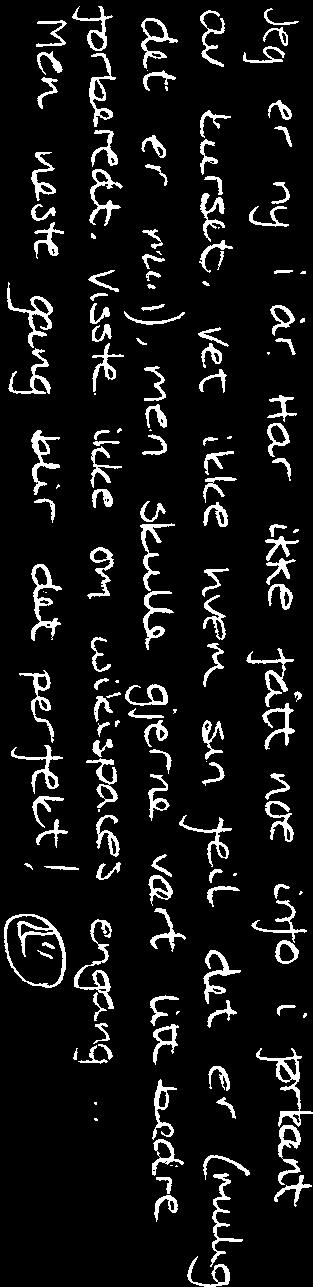 Jeg er ny i år. Har ikke fått noe info i forkant
av kurset, vet ikke hvem sin feil det er (mulig
det er mi..!), men skulle gjerne vært litt bedre
forberedt. Visste ikke om wikispaces engang...
Men neste gang blir det perfekt!